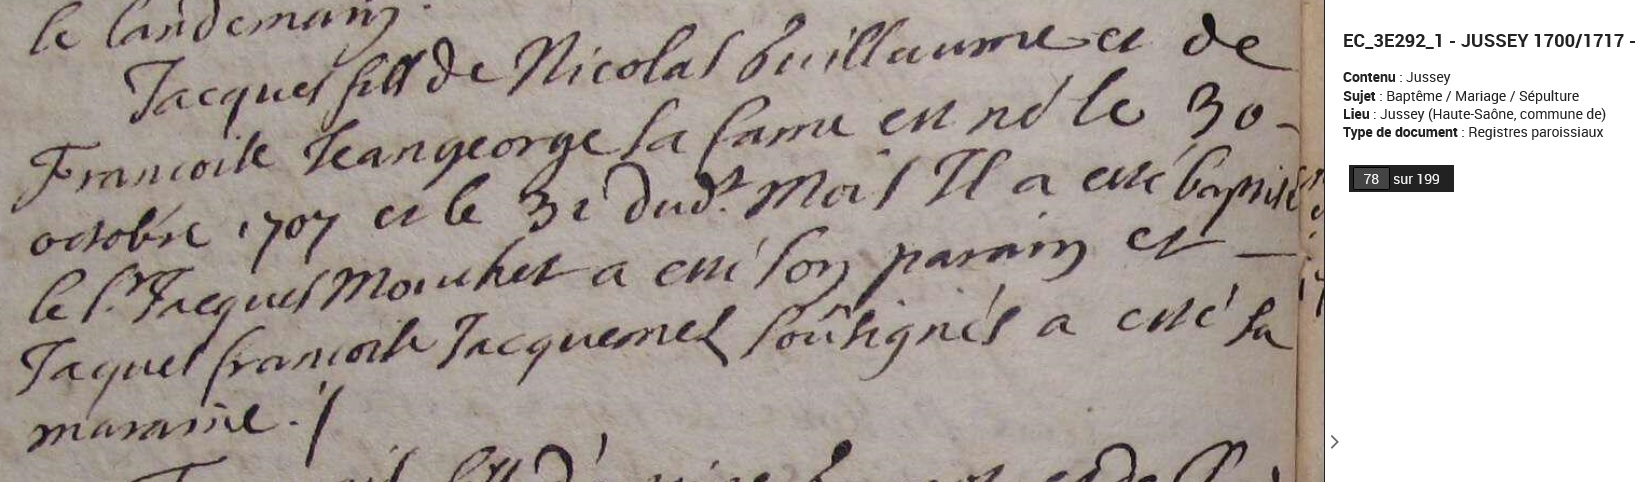 le landemain.
Jacques fils de Nicolas Guillaume et de
Francoise Jeangeorge sa fame est né le 30
octobre 1707 et le 31 dud.t Mois Il a esté baptisé
le s.r Jacques Mouchet a esté son parain et
Jaques francoise Jacquemel soûsignés a esté sa
maraine ./
EC_3E292_1 - JUSSEY 1700/1717 -
Contenu : Jussey
Sujet : Baptême / Mariage / Sépulture
Lieu : Jussey (Haute-Saône, commune de)
Type de document : Registres paroissiaux
78 sur 199